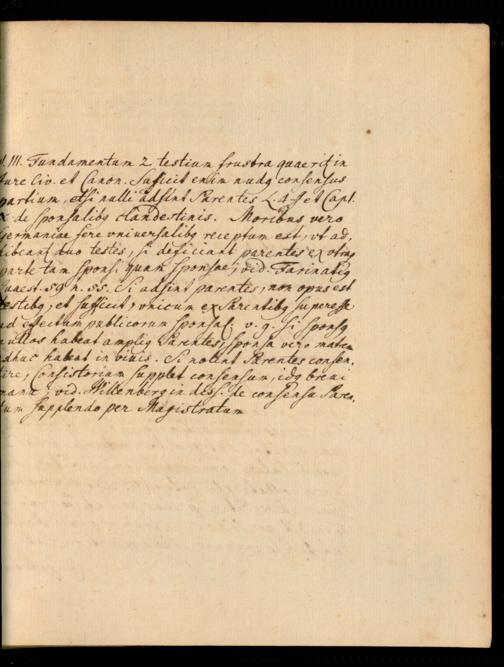 III. Fundamentum 2 testium frustra quaerit in
Jure Civ. et Canon. Sufficit enim nudq consensus
partium, etsi nulli adsint Parentes L. 4 et Capt.
de Sponsalibq clandestinis. Moribus vero
Germaniae fere vniuersalibq receptum est, vt ad,
hibeant duo testes, si deficiant parentes ex vtraq
parte tam Sponsi quam Sponsae, vid. Farinatiq
quaest. 59 n. 55. Si adsint parentes, non opus est
testibq, et sufficit, vnicum ex Parentibq superesse
ad effectum publicorum Sponsal; v. g. si Sponsq
nullos habeat ampliq Parentes, Sponsa vero matrem
adhuc habeat in viuis. Si nolint Parentes consen,
tire, Consistorium supplet consensum, idq breui
manu, vid. Willenberg in diss. de consensu Paren,
tum supplendo per Magistratum